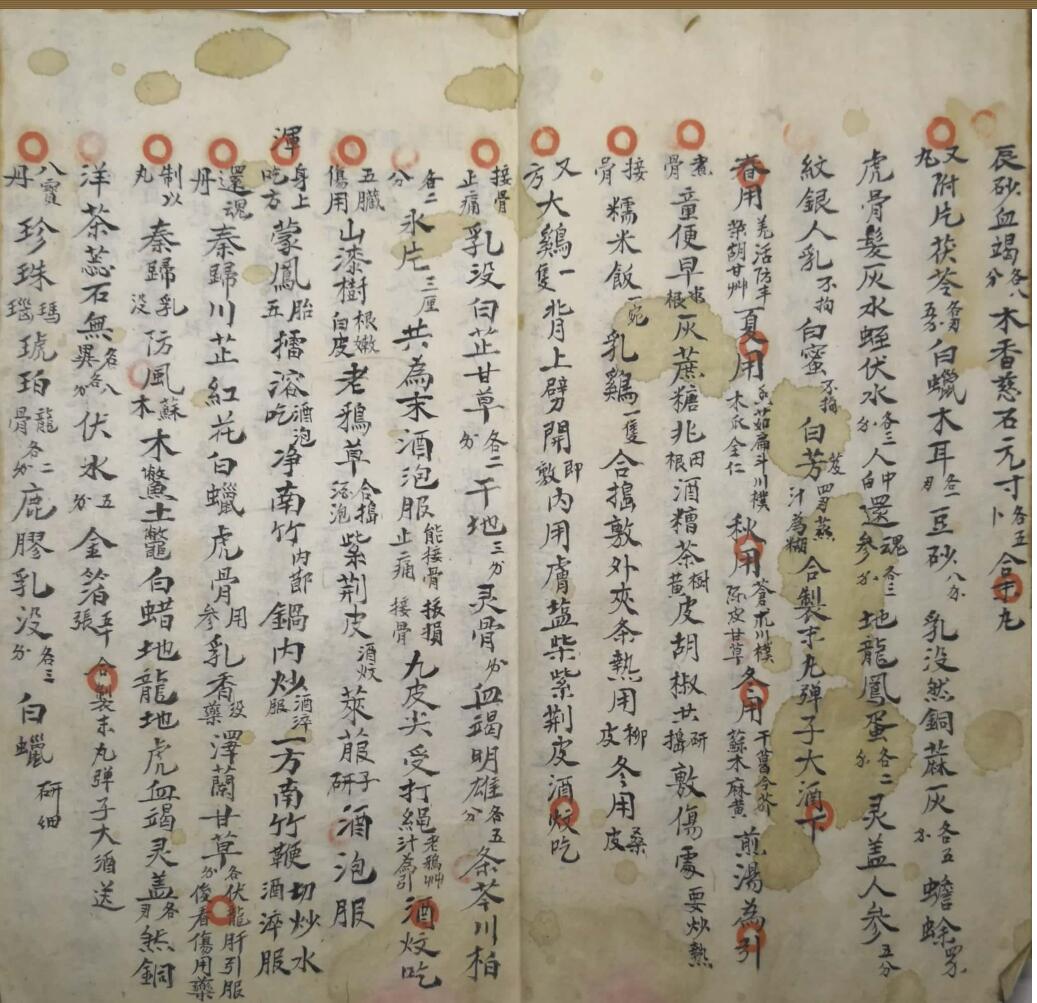 辰砂血竭各八分木香慈石元寸各五卜合末丸
又九附片茯苓各五分白蠟木耳各一刃豆砂八分乳没然銅蔴灰各五分蟾蜍四分
虎骨髮灰水蛭伏水各三分人中白還魂参各三分地龍鳳蛋各二分灵盖人参五分
紋銀人乳不拘白蜜不拘白芳四刃蒸汁為糊合製末丸弹子大酒下
春用羌活防丰柴胡甘艸夏用香茹扁斗川樸木瓜全仁秋用蒼朮川樸陈皮甘草冬用干葛今芥蘇木麻黄煎湯為引
煮骨童便早根灰蔗糖兆根酒糟茶樹黄皮胡椒共研搗敷傷處要炒熱
接骨糯米飯一宛乳鷄一隻合搗敷外夾条熱用柳皮冬用桑皮
又方大鷄一隻北月上劈開即敷内用膚盐柴紫荆皮酒炆吃
接骨止痛乳没白芷甘草各二分干地三分灵骨分血竭明雄各五分条芩川柏
各二分氷片三厘共為末酒泡服能接骨接損止痛接骨九皮尖受打縄老鴉艸汁為引酒炆吃
五臟傷用山漆樹根嫩白皮老鴉草合搗酒泡紫荆皮酒炆萊菔子研酒泡服
渾身上吃方蒙鳳胎五擂溶酒泡吃净南竹内節鍋内炒酒淬服一方南竹鞭切炒水酒淬服
還魂丹秦歸川芷紅花白蠟虎骨用参乳香没藥澤蘭甘草各分伏龍肝引服後看傷用藥
制以丸秦歸乳没防風蘇木木鱉土鼈白蜡地龍地虎血竭灵盖各刃然銅
洋茶蕊石無異各八分伏水五分金箔五十張合製末丸弹子大酒送
八寶丹珍珠瑪瑙琥珀龍骨各二分鹿膠乳没各三分白蠟研细